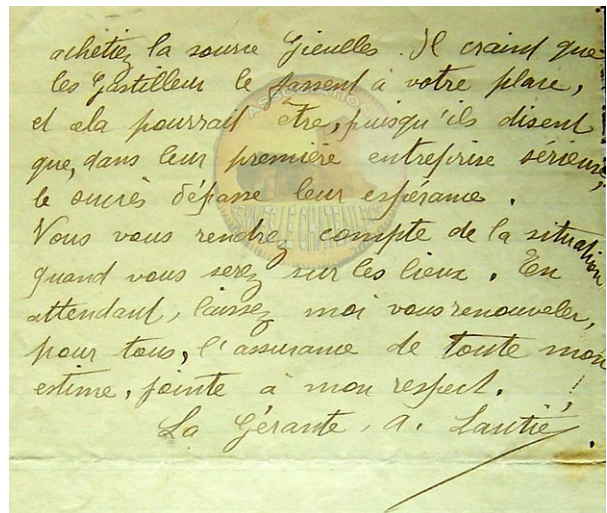 achetiez la source Gieulles. Il craint que
les Gastilleur le fassent à votre place,
et cela pourrait être, puisqu'ils disent
que, dans leur première entreprise sérieuse,
le succès dépasse leur espérance.
Vous vous rendrez compte de la situation
quand vous serez sur les lieux. En
attendant, laissez moi vous renouveler,
pour tous, l'assurance de toute mon
estime, jointe à mon respect.
La Gérante, A. Lautié.
ASSOCIATION
RENNES LE CHATEAU